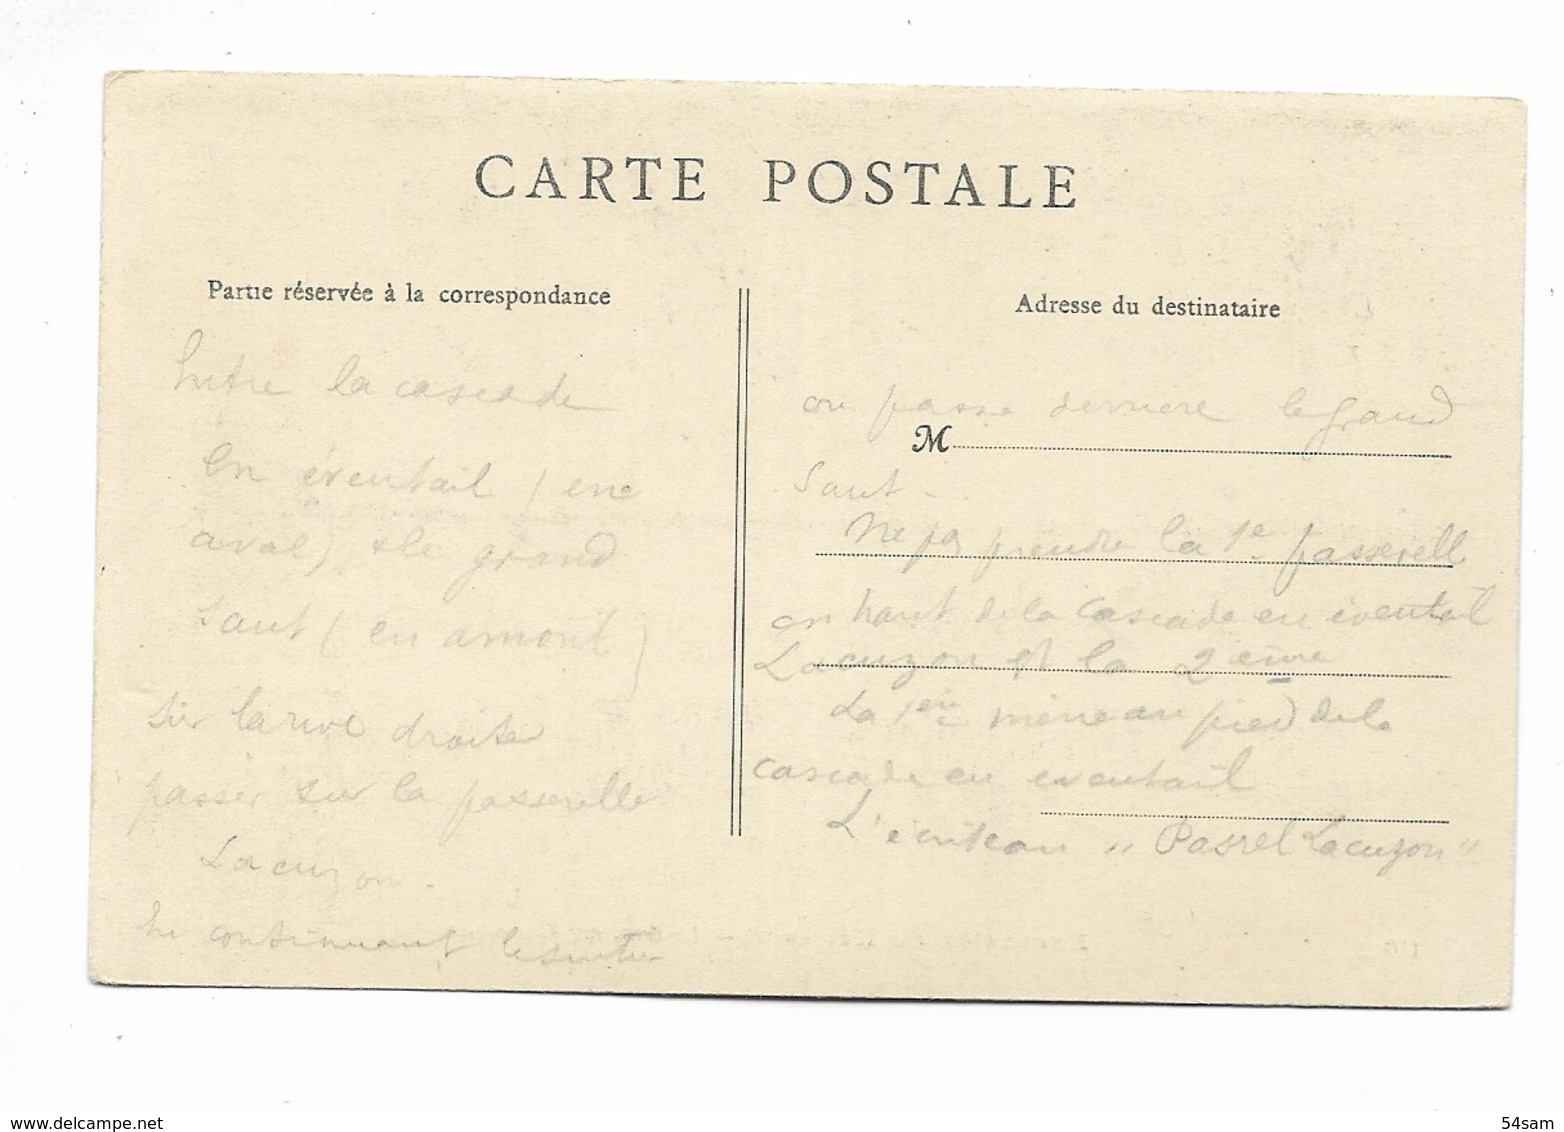 CARTE POSTALE
Partie réservée à la correspondance
Entre la cascade
En éventail (en
aval) et le grand
Saut (en amont)
sur la rive droite
passer sur la passerelle
Lacuzon.
En continuant le sentier
Adresse du destinataire
on passe derriere le grand
M
Saut -
Ne pas prendre la 1e passerell
en haut de la cascade en éventail
Lacuzon et la 2eme
La 1ere mène au pied de la
cascade en eventail
L'écriteau " Passel Lacuzon "
www.delcampe.net
54sam